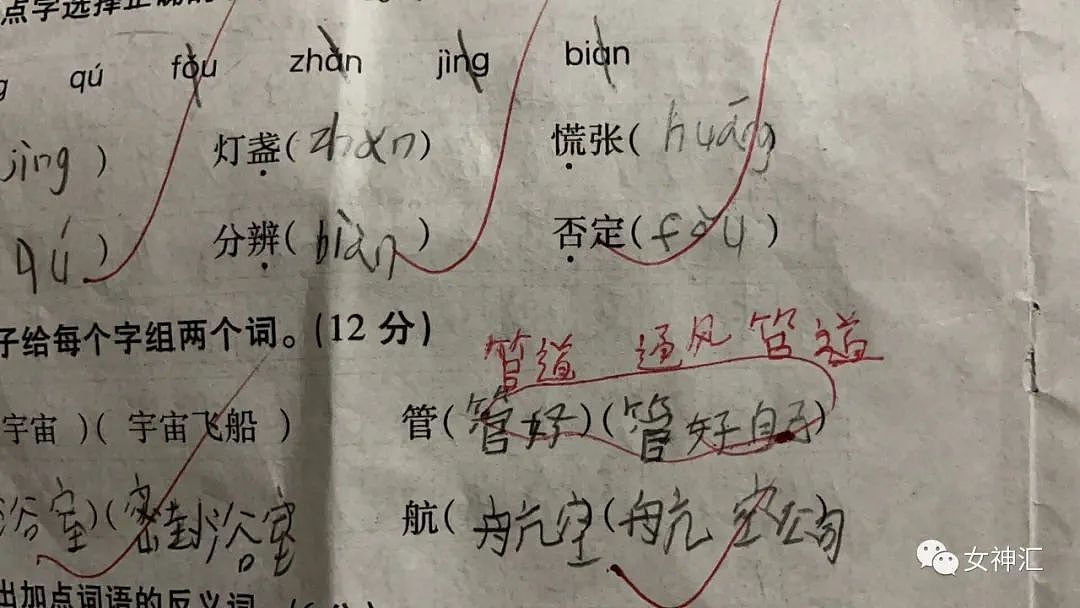 点字选择正确的
g qú fǒu zhǎn jìng biàn
jìng ) 灯盏( zhǎn ) 慌张( huāng )
qú ) 分辨( biàn ) 否定( fǒu )
子给每个字组两个词。(12 分)
管道 通风管道
宇宙 )( 宇宙飞船 ) 管( 管好 )( 管好自己 )
浴室 )( 密封浴室 航( 航空 )( 航空公司
出加点词语的反义词。(6 分)
女神汇